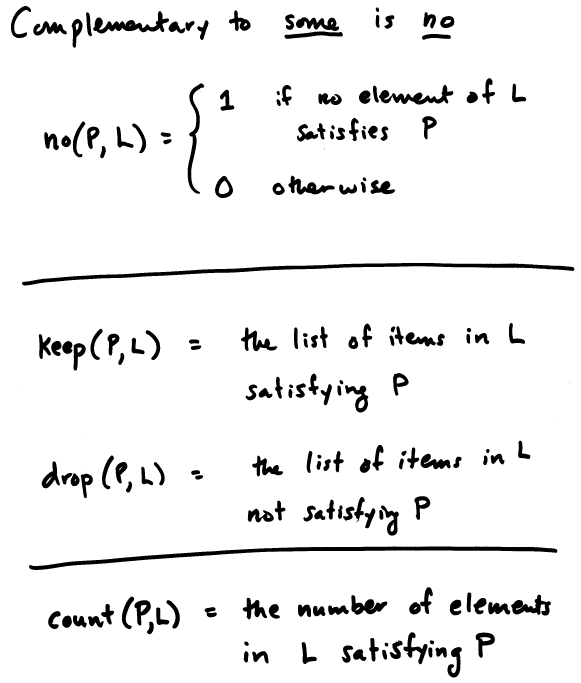 Complementary to some is no
no(P, L) = { 1 if no element of L
satisfies P
0 otherwise
keep(P, L) = the list of items in L
satisfying P
drop(P, L) = the list of items in L
not satisfying P
count(P,L) = the number of elements
in L satisfying P